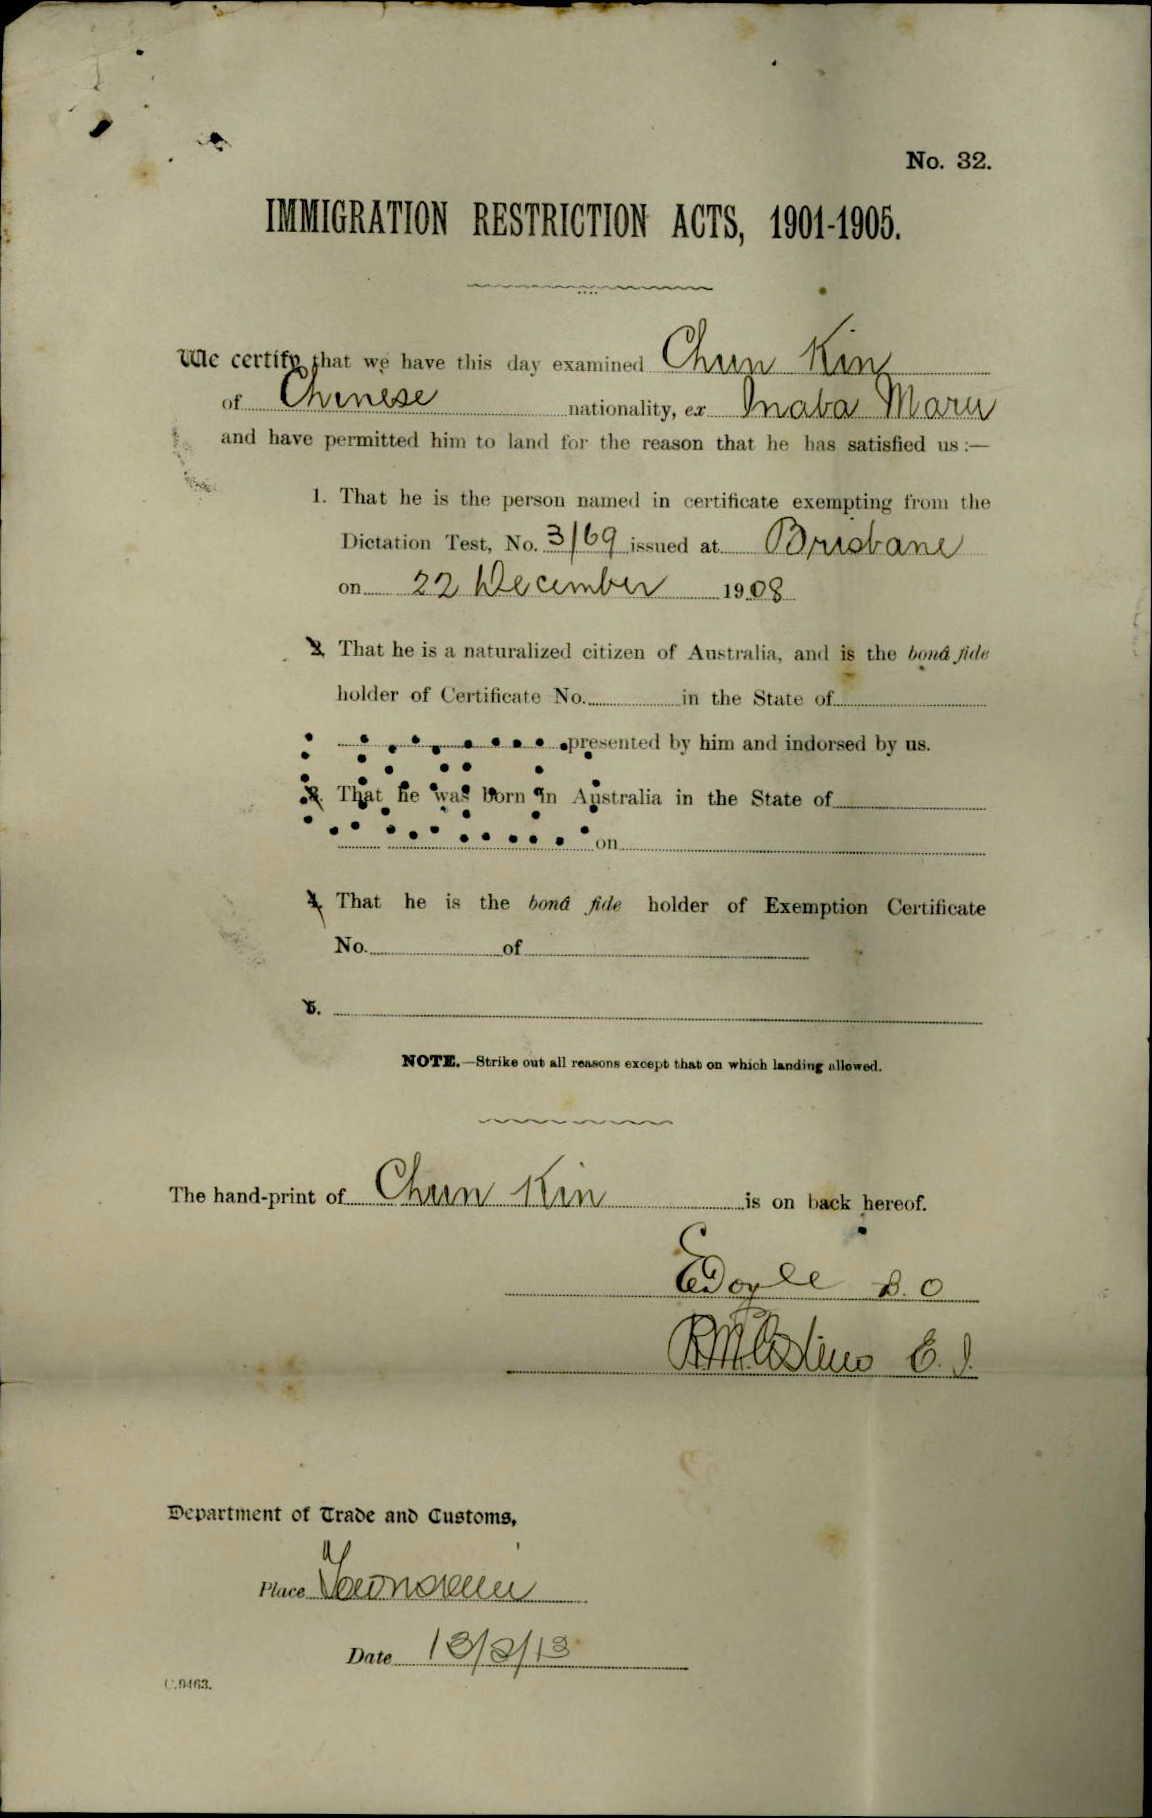 No. 32.
IMMIGRATION RESTRICTION ACTS, 1901-1905.
We certify that we have this day examined Chun Kin
of Chinese nationality, ex Inaba Maru
and have permitted him to land for the reason that he has satisfied us :—
1. That he is the person named in certificate exempting from the
Dictation Test, No. 3/69 issued at Brisbane
on 22 December 1908
2. That he is a naturalized citizen of Australia, and is the bonâ fide
holder of Certificate No. in the State of
presented by him and indorsed by us.
3. That he was born in Australia in the State of
on
4. That he is the bonâ fide holder of Exemption Certificate
No. of
5.
NOTE.—Strike out all reasons except that on which landing allowed.
The hand-print of Chun Kin is on back hereof.
EDoyle B.O
E. I.
Department of Trade and Customs,
Place Townsville
Date 13/2/13
C.9463.